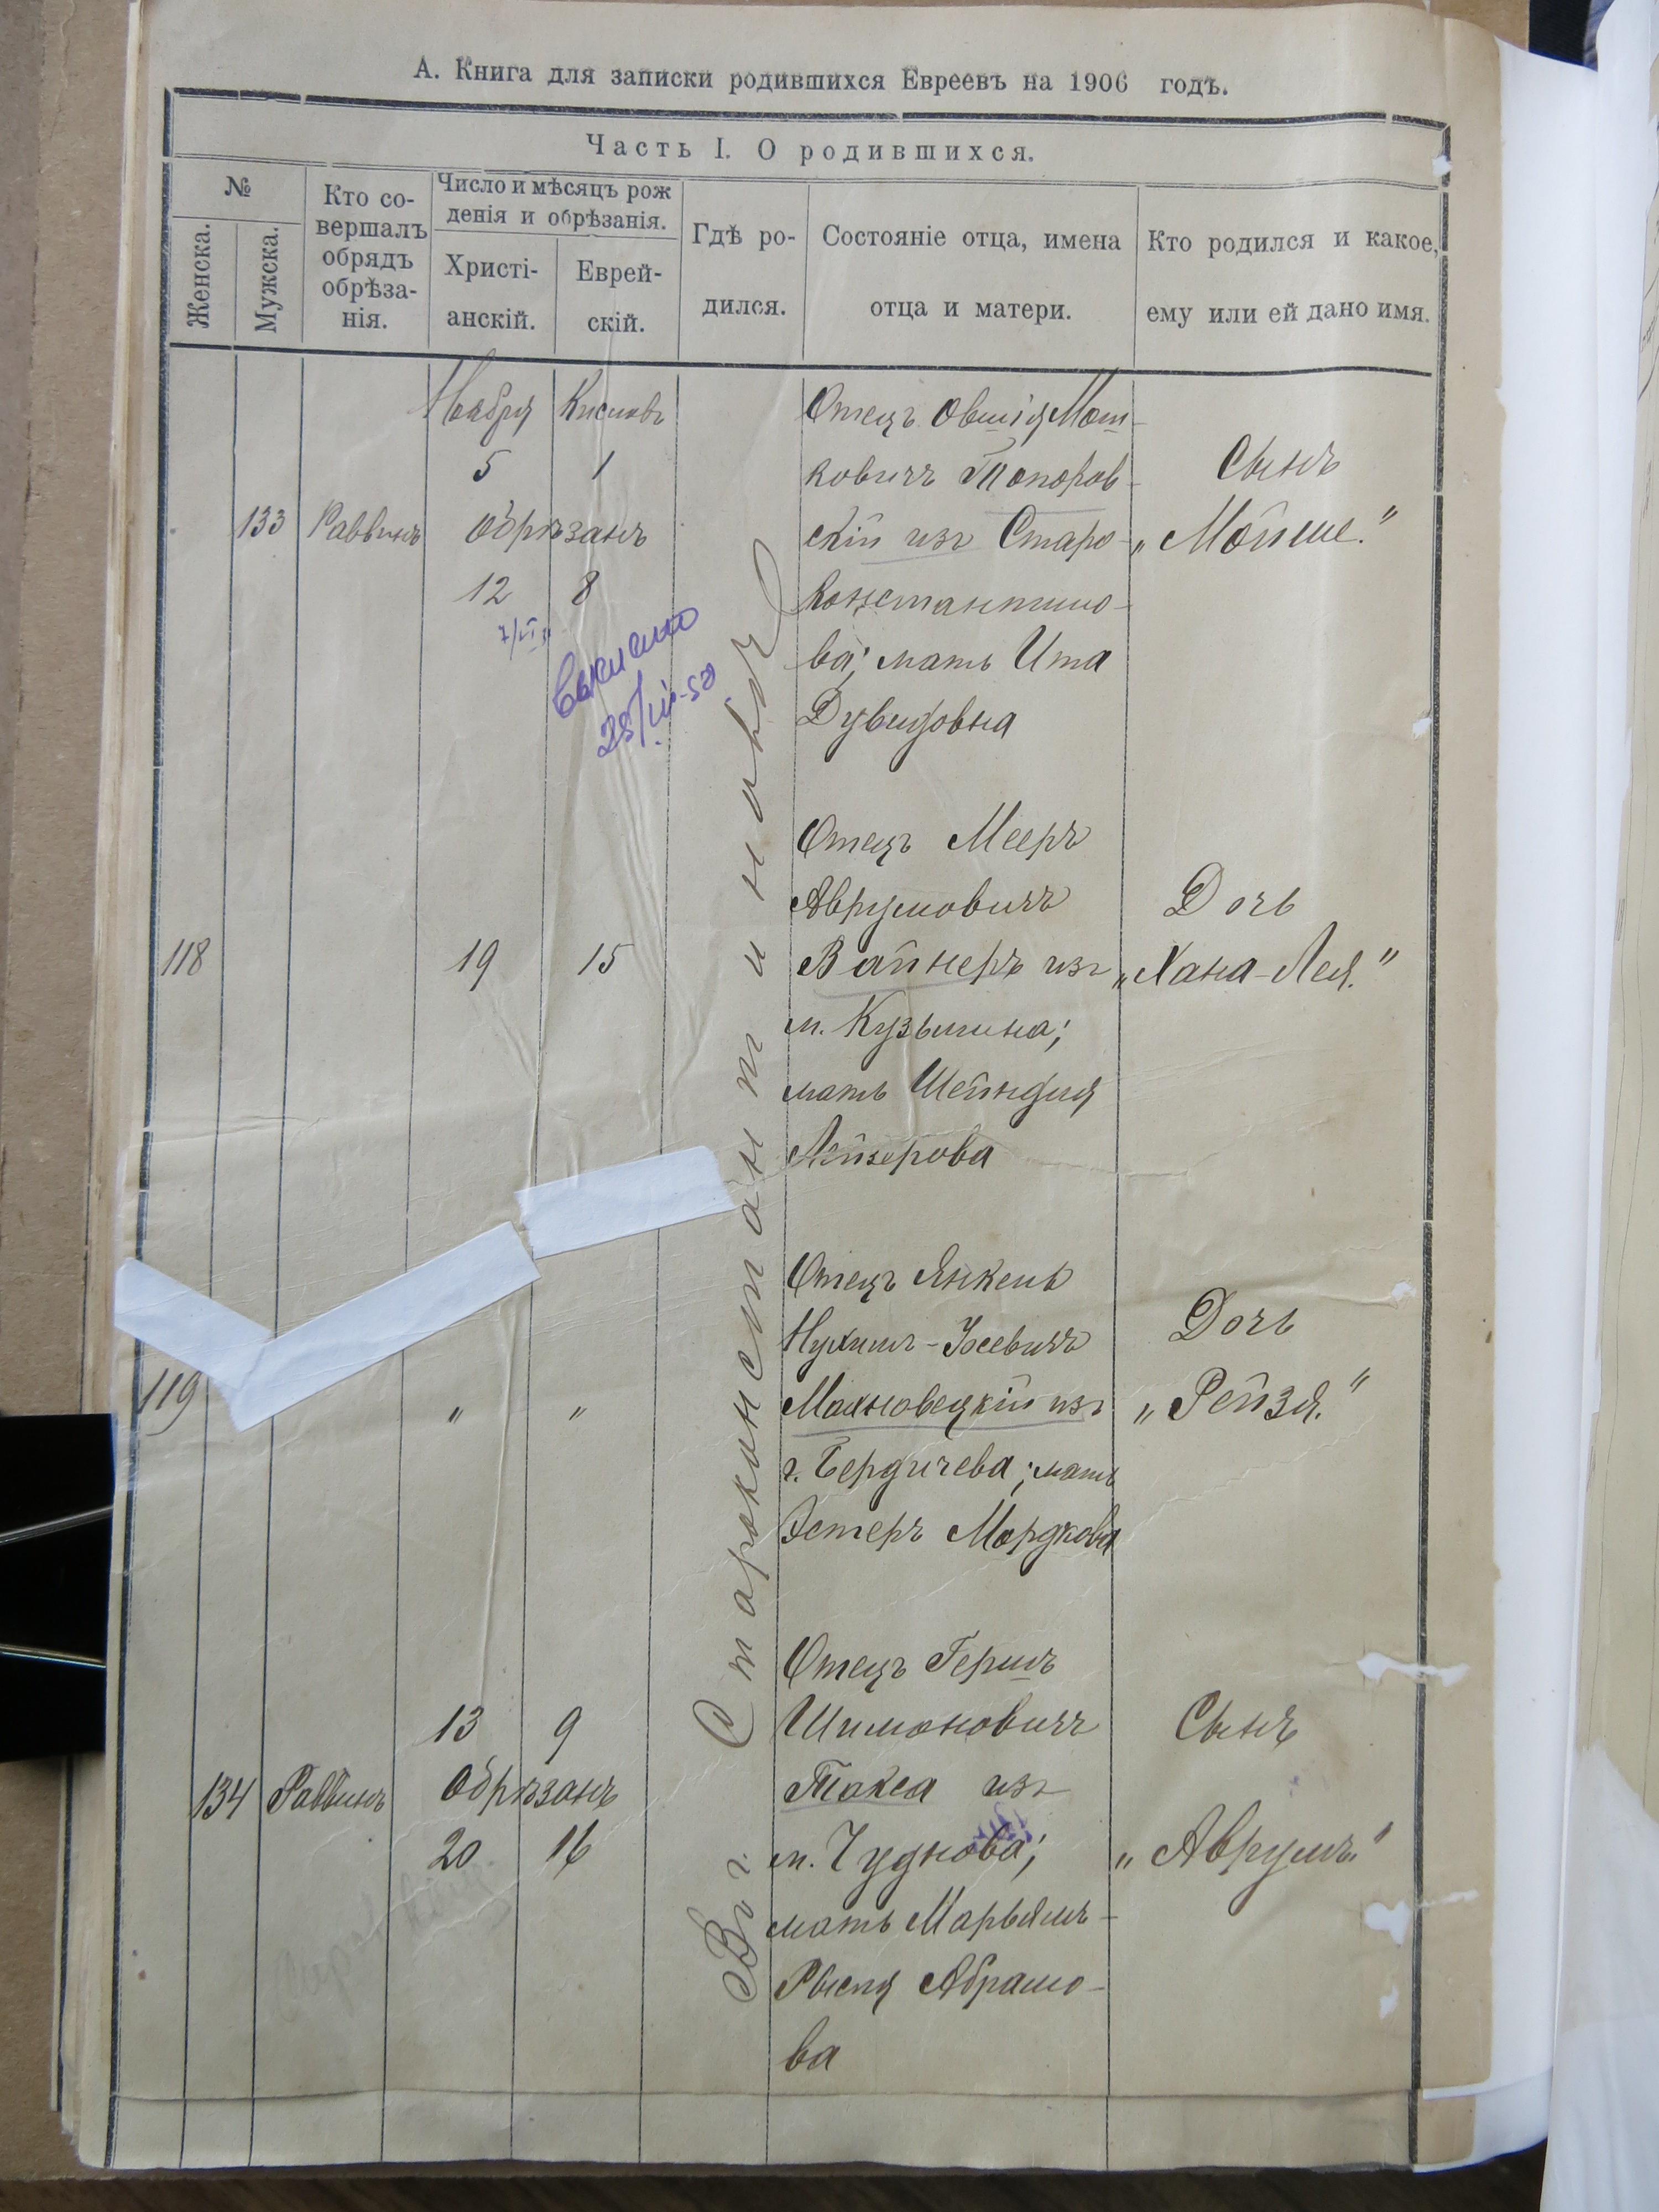 А. Книга для записки родившихся Евреевъ на 1906 годъ.
Часть I. О родившихся.
№
Женска.
Мужска.
Кто со-
вершалъ
обрядъ
обрѣза-
нія.
Число и мѣсяцъ рож
денія и обрѣзанія.
Христі-
анскій.
Еврей-
скій.
Гдѣ ро-
дился.
Состояніе отца, имена
отца и матери.
Кто родился и какое,
ему или ей дано имя.
133
Раввинъ
Ноября Кислевъ
5 1
обрѣзанъ
12 8
7/VI
25/III-50
Въ г. Староконстантиновѣ
Отецъ Овшія Мош-
ковичъ Топоров-
скій изъ Старо-
константино-
ва; мать Ита
Дувидовна
Сынъ
„Мойше."
118
19 15
Отецъ Мееръ
Аврумовичъ
Вайнеръ изъ
м. Кузьмина;
мать Шейндля
Лейзерова
Дочь
„Хана-Лея."
119
" "
Отецъ Янкель
Нухимъ-Іосевичъ
Махновецкій изъ
г. Бердичева; мать
Эстеръ Мордкова
Дочь
„Рейзя."
134
Раввинъ
13 9
Обрѣзанъ
20 16
Отецъ Гершъ
Шимоновичъ
Такса изъ
м. Чуднова;
мать Марьямъ-
Рыся Абрамо-
ва
Сынъ
„Аврумъ."